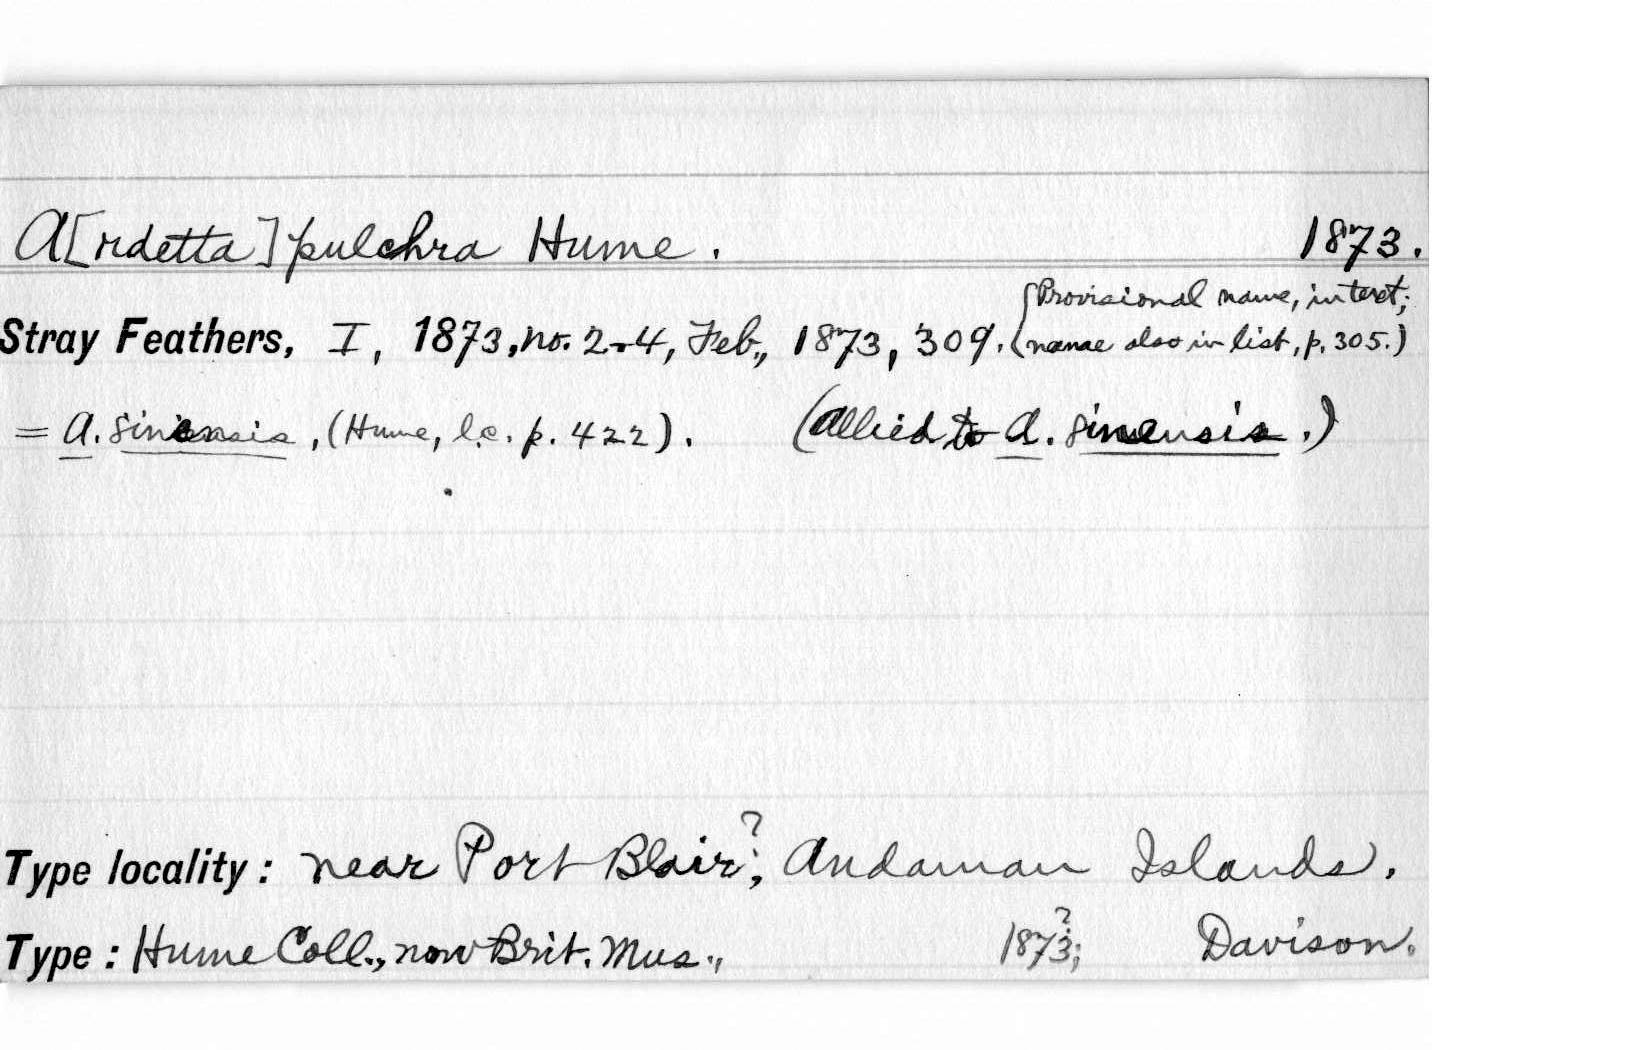 A[rdetta] pulchra Hume. 1873.
(Provisional name, in text;
Stray Feathers, I, 1873, no. 2-4, Feb., 1873, 309. (name also in list, p. 305.)
= A. sinensis, (Hume, l.c. p. 422). (Allied to A. sinensis.)
Type locality: near Port Blair?, Andaman Islands.
Type: Hume Coll., now Brit. Mus., 1873?; Davison.